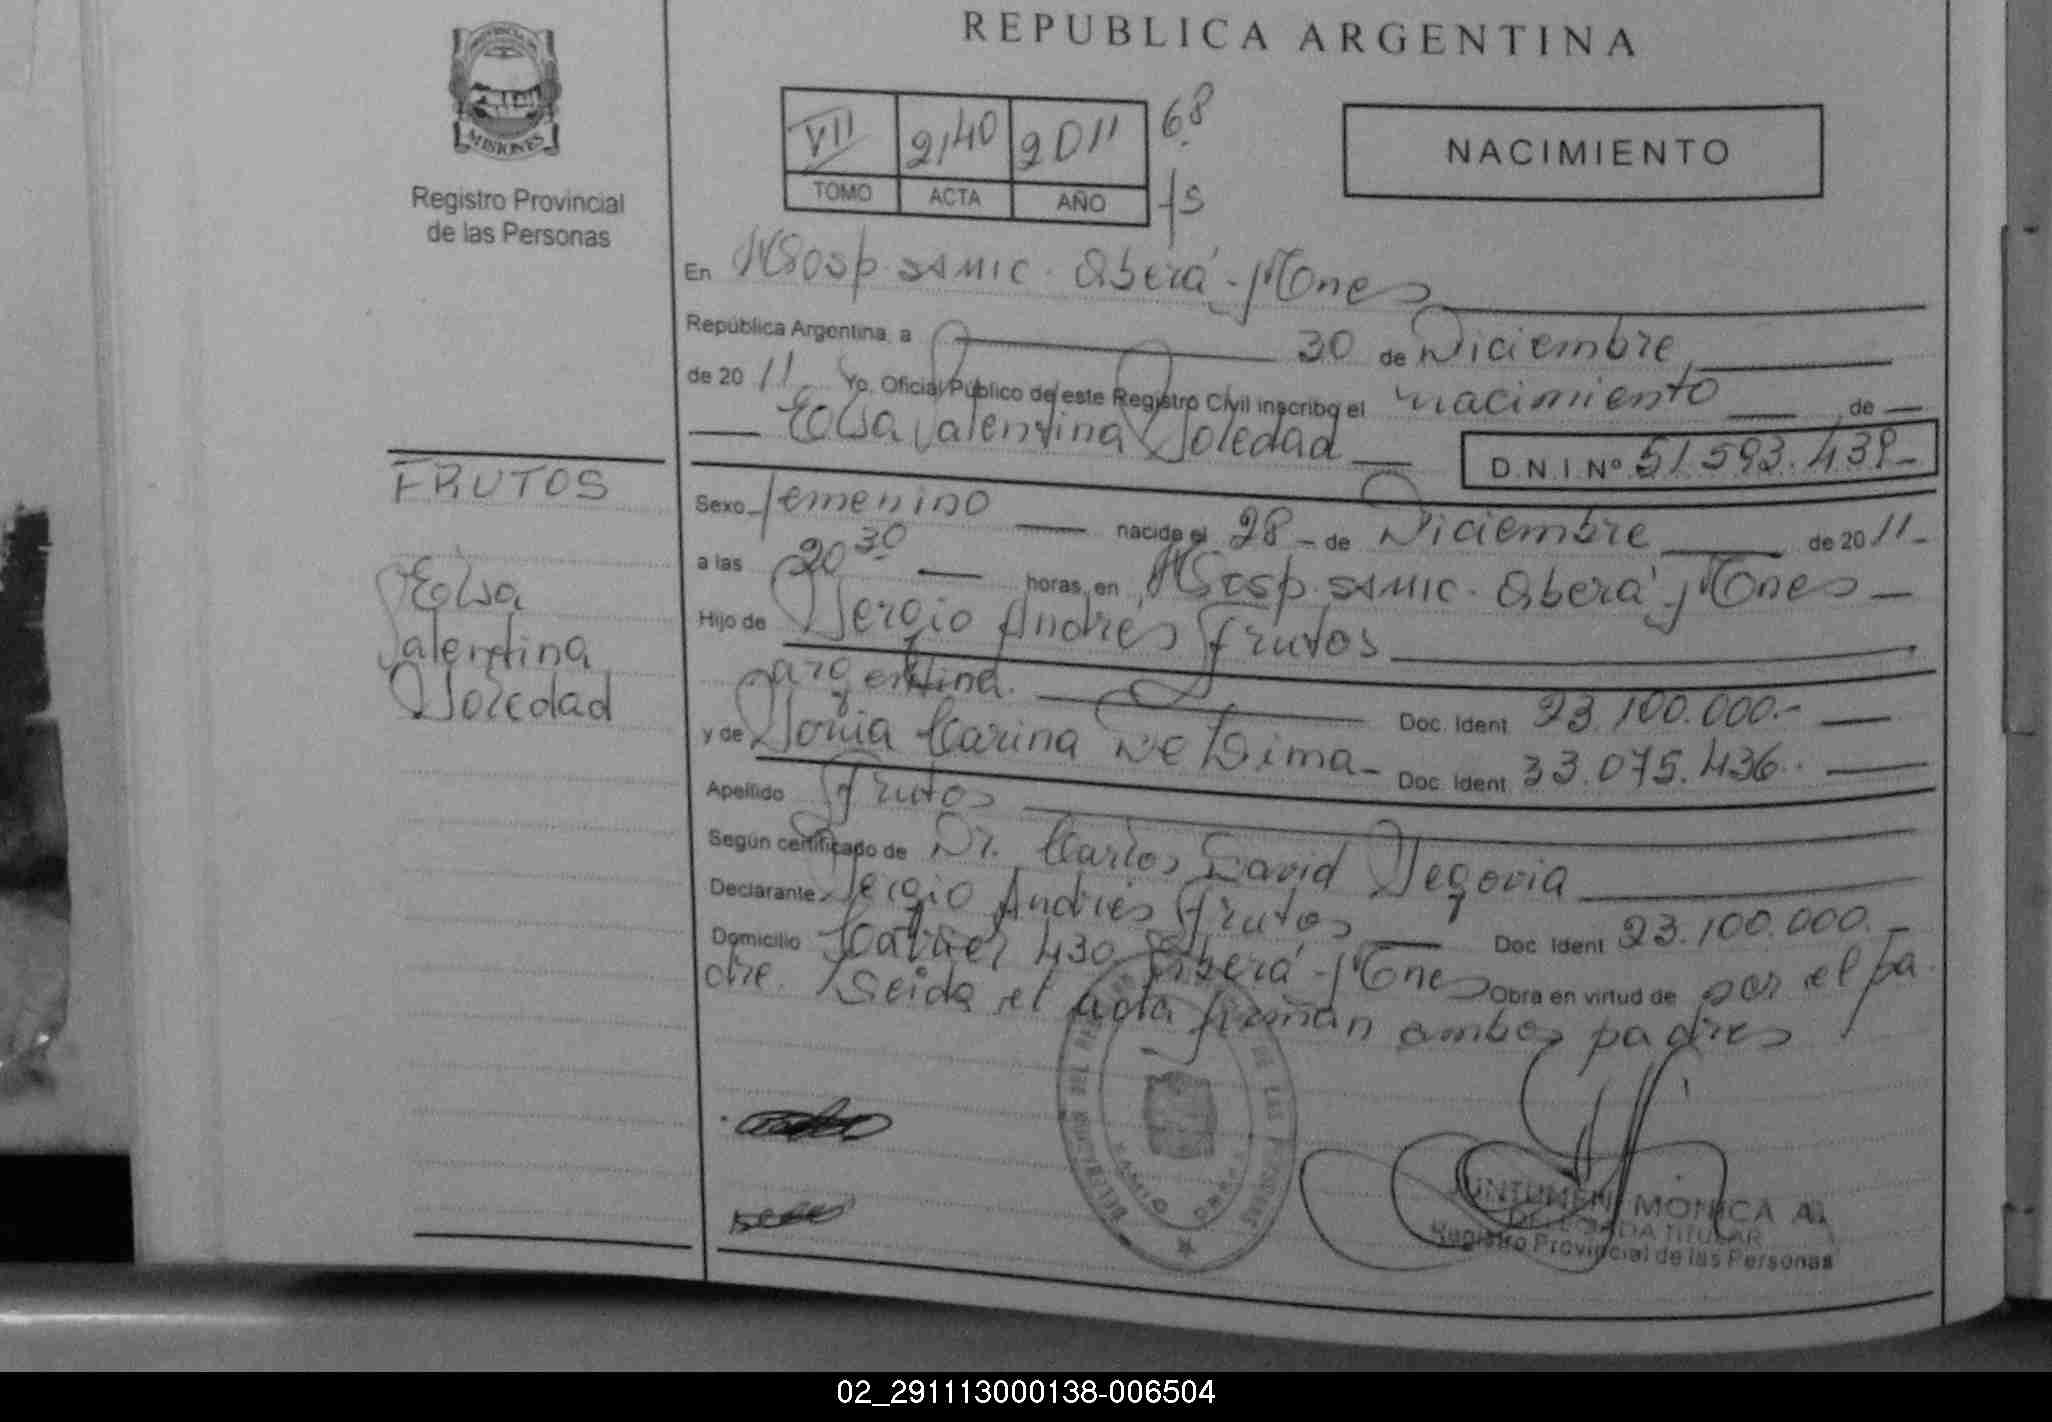 REPUBLICA ARGENTINA
PROVINCIA DE
MISIONES
Registro Provincial
de las Personas
VII 2140 2011 68
TOMO ACTA AÑO fs
NACIMIENTO
En Hosp. SAMIC. Oberá - Mnes
República Argentina, a 30 de Diciembre
de 20 11 Yo, Oficial Público de este Registro Civil inscribo el nacimiento de
Elsa Valentina Soledad D.N.I.Nº 51.593.439-
FRUTOS
Elsa
Valentina
Soledad
Sexo femenino nacido el 28 - de Diciembre de 20 11 -
a las 20 30 horas, en Hosp. SAMIC. Oberá - Mnes
Hijo de Sergio Andrés Frutos
argentina. Doc. Ident 23.100.000.-
y de Sonia Carina De Lima - Doc. Ident 33.075.436.
Apellido Frutos
Según certificado de Dr. Carlos David Segovia
Declarante Sergio Andrés Frutos Doc. Ident 23.100.000.-
Domicilio 430 Oberá - Mnes Obra en virtud de ser el pa
dre. Leida el acta firman ambos padres
MONICA A.
DELEGADA TITULAR
Registro Provincial de las Personas
02_291113000138-006504